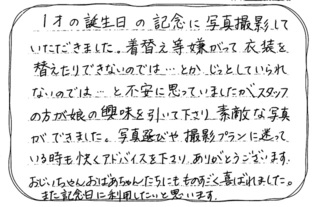 1才の誕生日の記念に写真撮影して
いただきました。着替え等嫌がって衣装を
替えたりできないのでは…とか、じっとしていられ
ないのでは…と不安に思っていましたが、スタッフ
の方が娘の興味を引いて下さり素敵な写真
ができました。写真選びや撮影プランに迷って
いる時も快くアドバイスを下さり、ありがとうございます。
おじいちゃん、おばあちゃんたちにもものすごく喜ばれました。
また記念日に利用したいと思います。